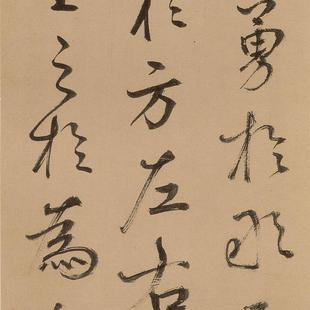 勇於
於方左右
之於為